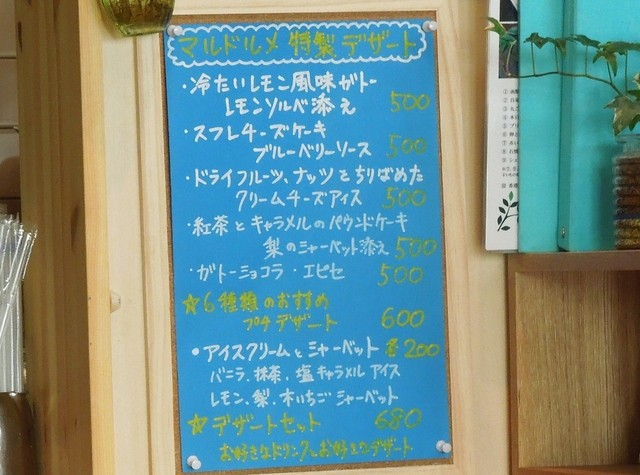 マルドルメ 特製デザート
・冷たいレモン風味ガトー
レモンソルベ添え 500
・スフレチーズケーキ
ブルーベリーソース 500
・ドライフルーツ、ナッツとちりばめた
クリームチーズアイス 500
・紅茶とキャラメルのパウンドケーキ
梨のシャーベット添え 500
・ガトーショコラ・エピセ 500
☆6種類のおすすめ
プチデザート 600
●アイスクリームとシャーベット 各200
バニラ、抹茶、塩キャラメル アイス
レモン、梨、木いちご シャーベット
☆デザートセット 680
お好きなドリンクとお好きなデザート